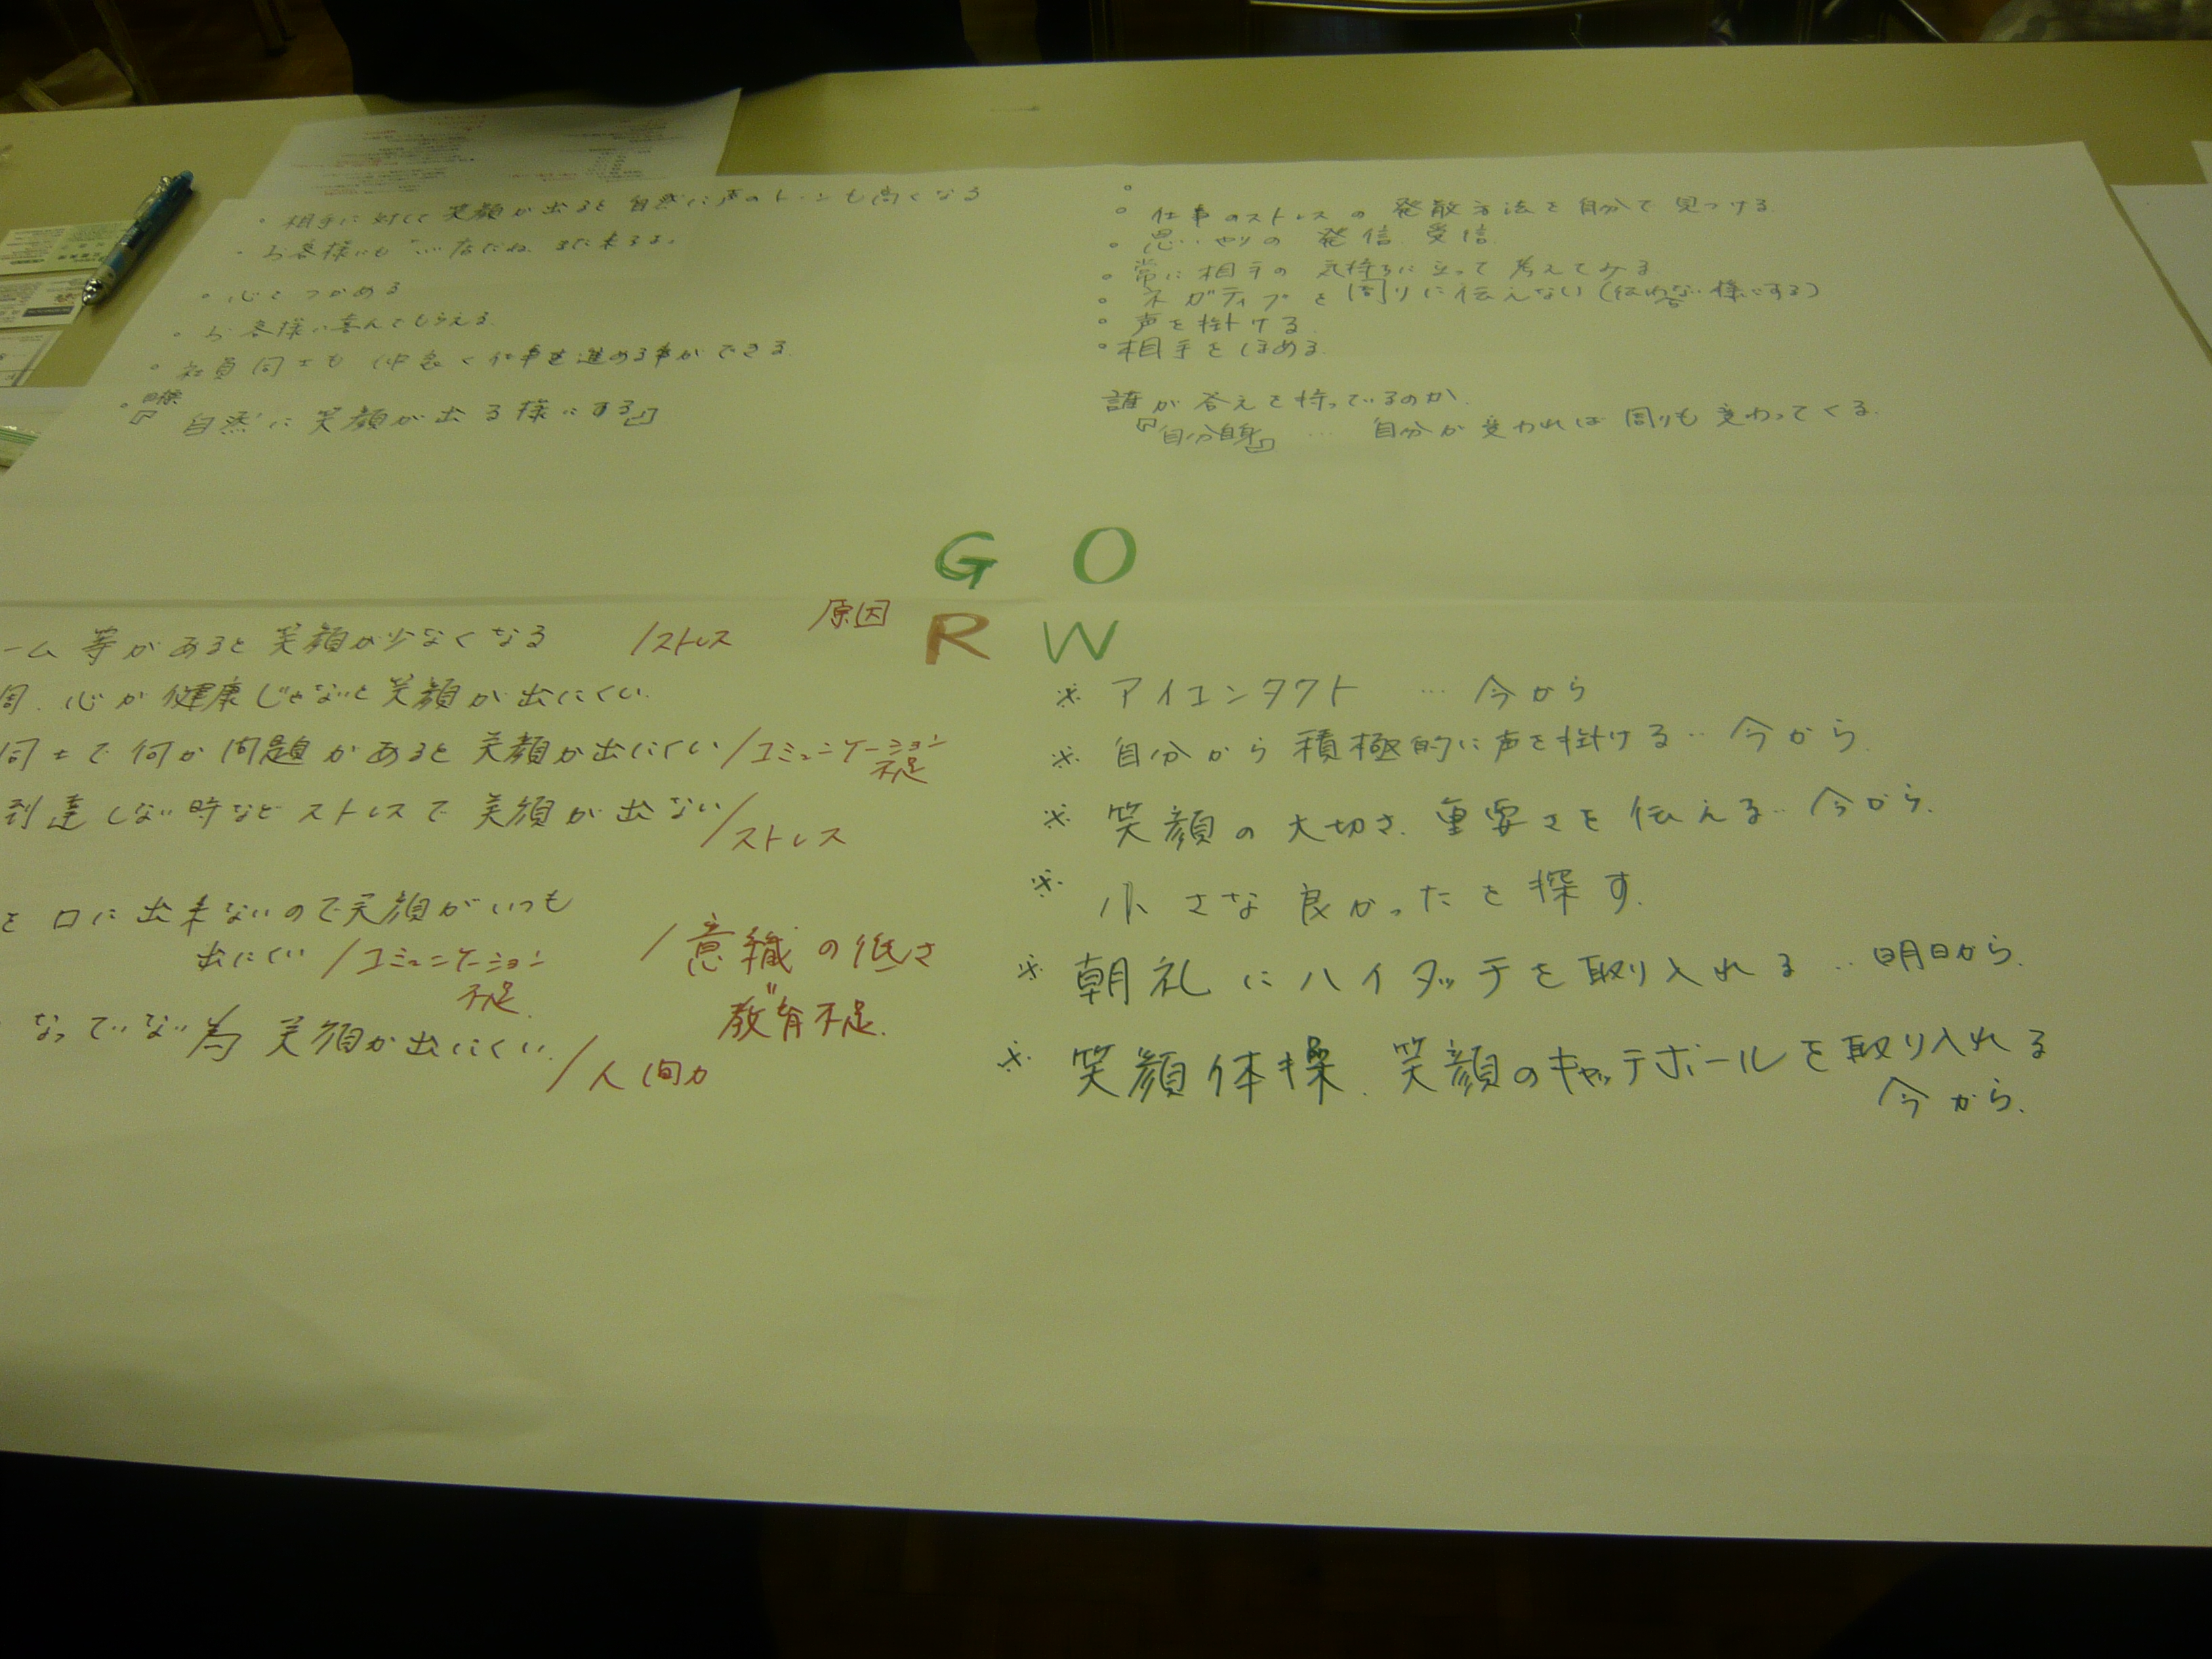 ・相手に対して笑顔が出ると自然に声のトーンも高くなる
・お客様にもいい店だね、また来るよ。
・心をつかめる
・お客様に喜んでもらえる
・社員同士も仲良く仕事を進める事ができる
・目標
『自然に笑顔が出る様にする』
・
・仕事のストレスの発散方法を自分で見つける
・思いやりの発信、受信
・常に相手の気持ちに立って考えてみる
・ネガティブを周りに伝えない(伝わらない様にする)
・声を掛ける
・相手をほめる
誰が答えを持っているのか
『自分自身』 … 自分が変われば周りも変わってくる
G O
R W
原因
ーム等があると笑顔が少なくなる /ストレス
心が健康じゃないと笑顔が出にくい
同士で何か問題があると笑顔が出にくい/コミュニケーション
不足
到達しない時などストレスで笑顔が出ない/ストレス
を口に出来ないので笑顔がいつも
出にくい /コミュニケーション
不足
/意識の低さ
〃
教育不足.
なっていない為笑顔が出にくい /人間力
※ アイコンタクト … 今から
※ 自分から積極的に声を掛ける‥今から
※ 笑顔の大切さ、重要さを伝える‥今から
※ 小さな良かったを探す.
※ 朝礼にハイタッチを取り入れる‥明日から
※ 笑顔体操、笑顔のキャッチボールを取り入れる
今から